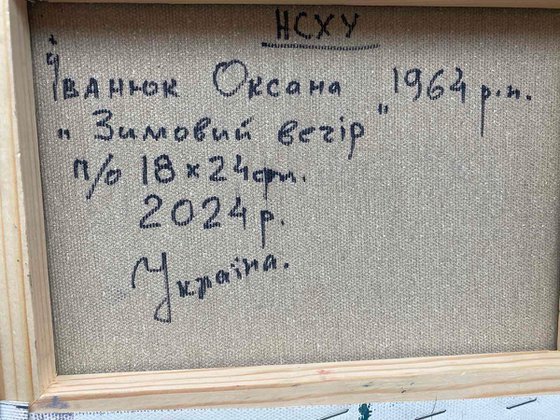 НСХУ
Іванюк Оксана 1964 р.н.
„Зимовий вечір"
п/о 18 х 24 см.
2024 р.
Україна.